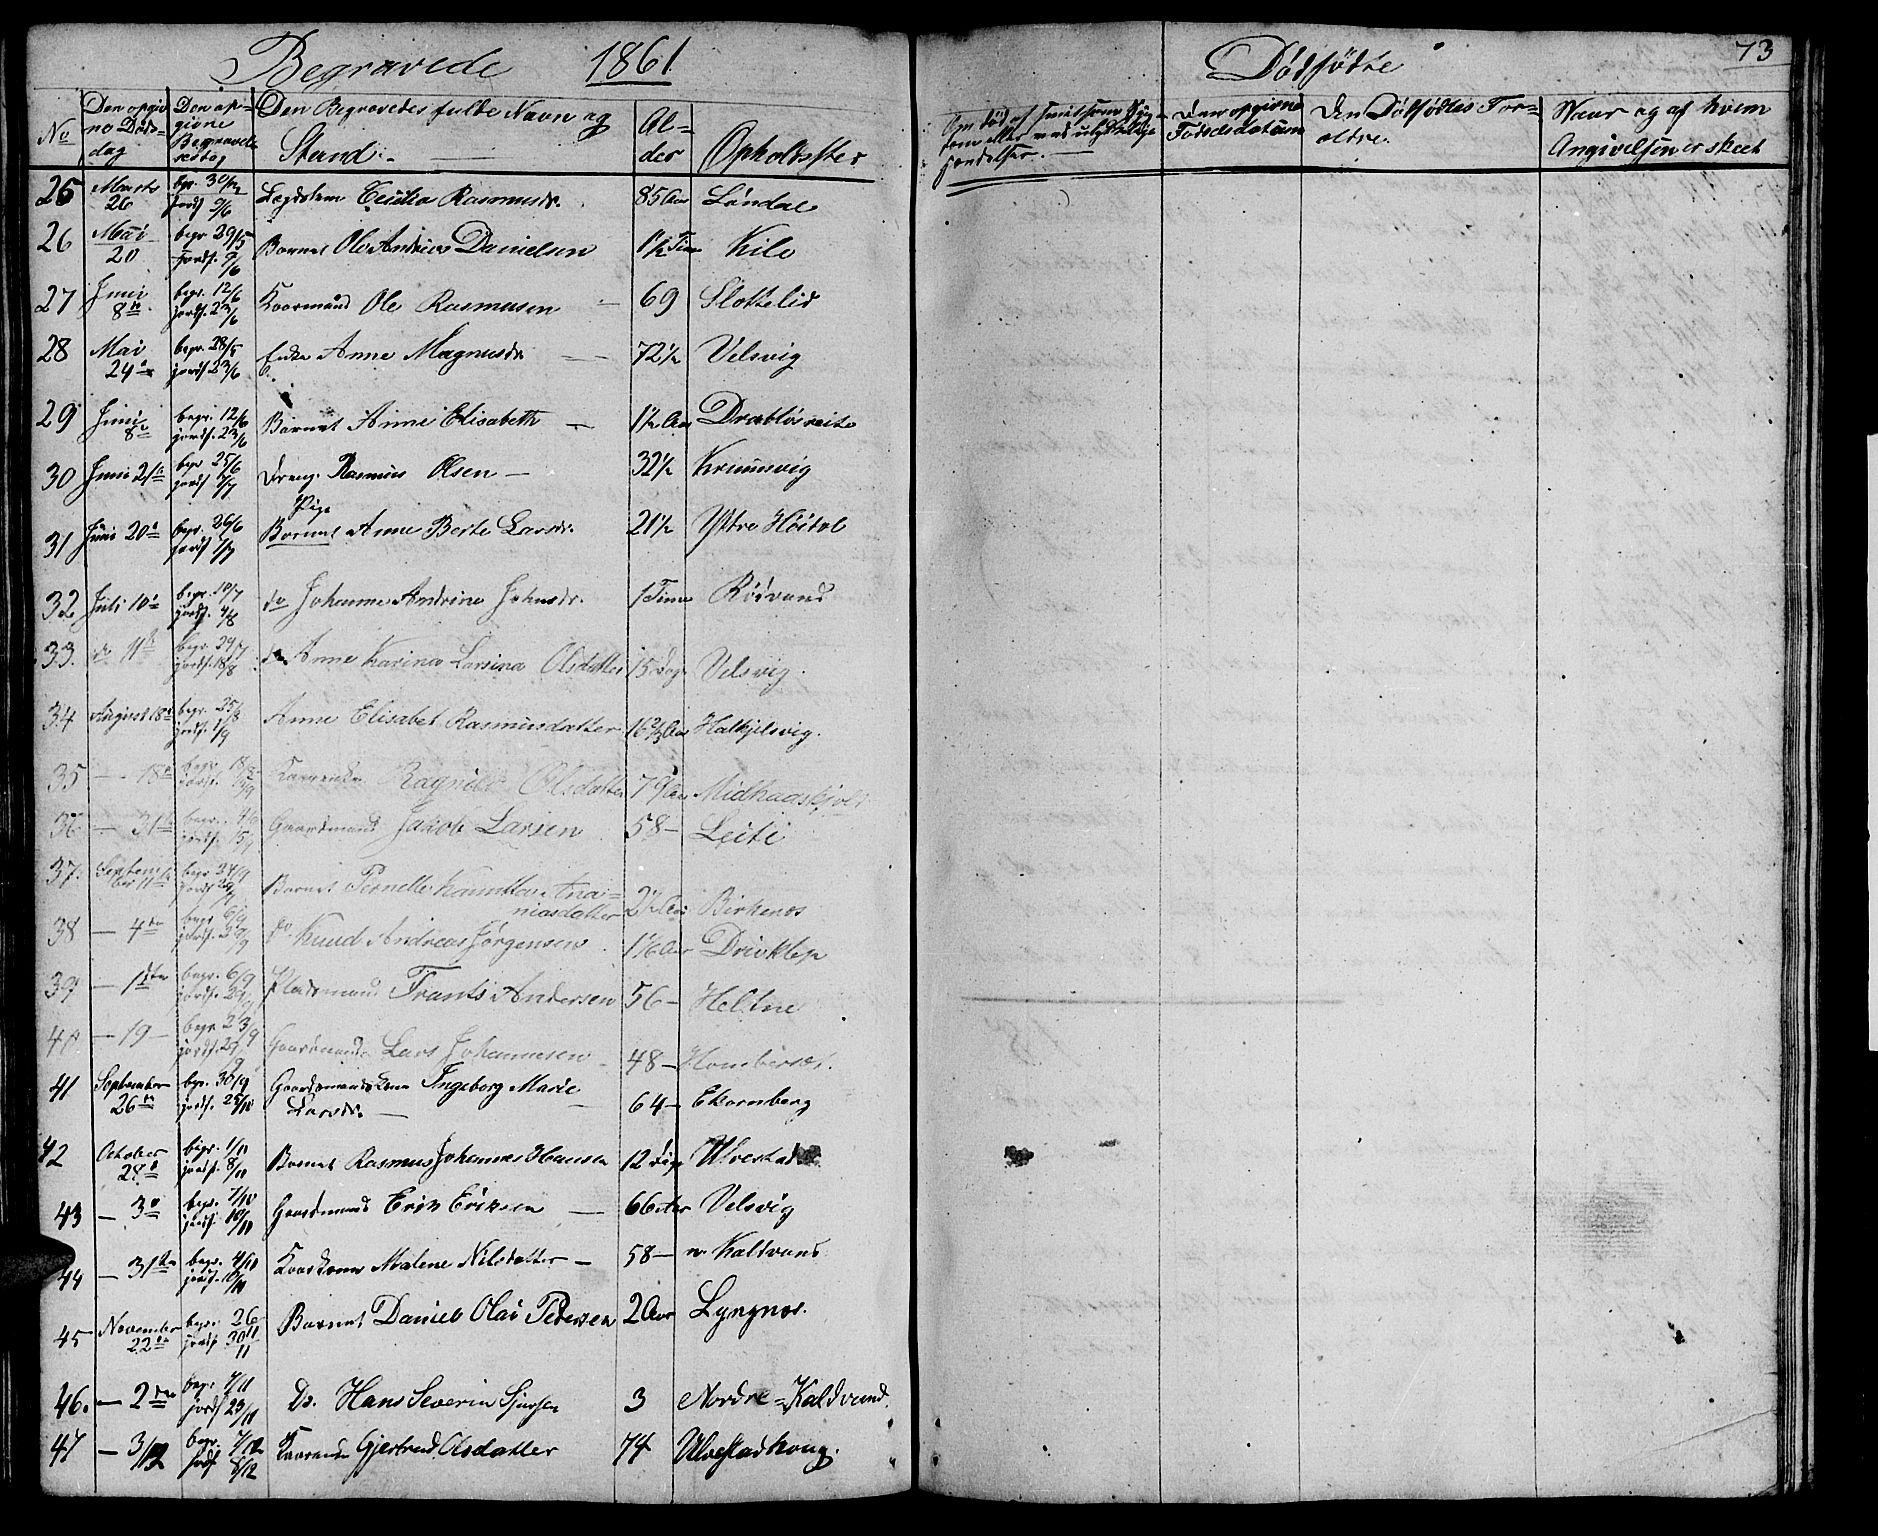 Begravede 1861
No
Den opgiv
ne Døds-
dag
Den op-
givne
Begravel-
sesdag
Den Begravedes fulde Navn og
Stand.
Al-
der
Opholdssted
25 Marts 26 begr. jords. 9/6 Lægdslem Rasmusdr. 85 Aar Løndal
26 Mai 20 begr 29/5 jords. 9/6 Barnet Ole Andreas Danielsen 1½ Time Kile
27 Juni 8de begr. 12/6 jords. 23/6 Kaarmand Ole Rasmusen 69 Slettelid
28 Mai 24de begr. 28/5 jords 23/6 Enke Anne Magnusdr. 72½ Velsvig
29 Juni 8de begr. 12/6 jords. 23/6 Barnet Anne Elisabeth 1½ Aar Drabløsreite
30 Juni 21de begr 25/6 jords 7/7 Dreng Rasmus Olsen 32½ Krumsvig
Pige
31 Juni 20de begr. 26/6 jords 7/7 Barnet Anne Berte Larsdr. 21½ Ystre Høidal
32 Juli 10de begr. 10/7 jords. 4/8 do Johanne Andrine Johnsdr. 1 Time Røivand
33. do 11te begr. 24/7 jords. 18/8 do Anne Karina Larsina Olsdatter 15 Dage Velsvig.
34 August 18de begr. 25/8 jords. 1/9 Anne Elisabet Rasmusdatter 16 Aar Halkjelsvig.
35 — 18de begr. jords. Ragnild Olsdatter 79 Aar Midhaaskjold
36 — 31te begr. jords. 15/9 Gaardmand Jakob Larsen 58 — Leiti
37. September 11te begr 24/9 jords 29/9 Barnet Pernelle Anania=
niasdatter 2½ Aar Birkenes
38 — 4de begr 6/9 jords. 29/9 do Knud Andreas Jørgensen 1 Aar Drivklep
39 — 1ste begr. 6/9 jords. 29/9 Pladsmand Frants Andersen 56 — Heltne
40 — 19 — begr. 23/9 jords. 29/9 Gaardmand Lars Johannesen 48 — Homberset.
41 September 26de begr. 30/9 jords. 25/10 Gaardmandskone Ingeborg Marie
Larsdr. 64 — Ekornberg
42 October 28de begr. 1/11 jords. 8/11 Barnet Rasmus Johannes Hansen 12 Dage Ulvestad
43 — 3de begr. 7/10 jords. 10/11 Gaardmand Erik Eriksen 66 Aar Velsvig
44 — 31te begr. 4/11 jords. 10/11 Kaarkone Malene Nilsdatter 58 — n. Kaldvand
45 November 22de begr. 26 jords. 30/11 Barnet Daniel Olai Pedersen 2 Aar Lyngnes.
46. — 2den begr. 7/11 jords 23/11 Do. Hans Severin Sjursen 3 Nordre=Kaldvand.
47 — 3/12 begr. 7/12 jords 8/12 Gjertrud Olsdatter 74 Ulvestadhoug.
Dødfødte
73
Om død af smitsom Syg-
dom eller ved ulykkelige
hændelser.
Den opgivne
Fødselsdatum
Den Dødfødtes For=
ældre.
Naar og af hvem
Angivelsen er skeet